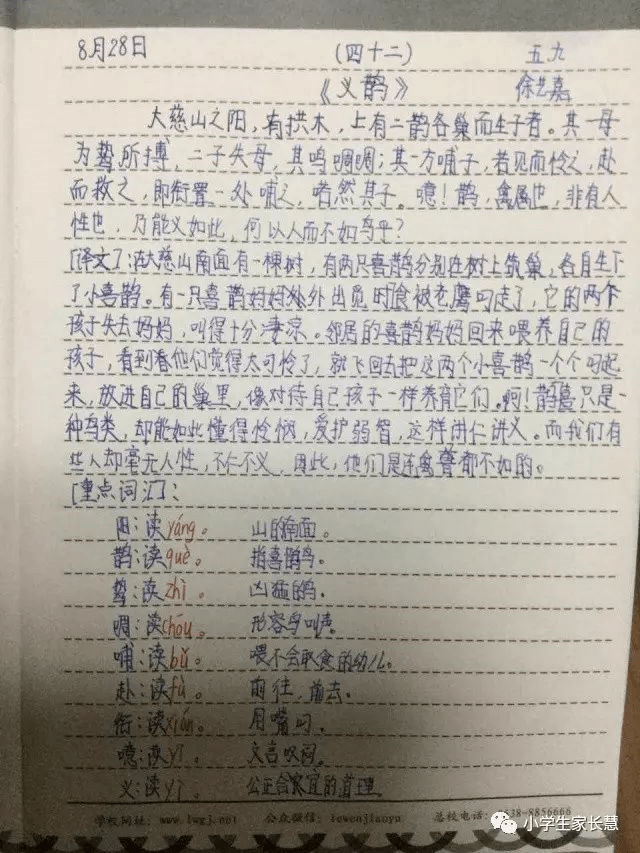 8月28日 (四十二) 五九
《义鹊》 徐艺嘉
大慈山之阳，有拱木，上有二鹊各巢而生子者。其一母
为鸷所搏，二子失母，其鸣啁啁；其一方哺子，若见而怜之，赴
而救之，即衔置一处哺之，喏然其子。噫！鹊，禽属也，非有人
性也，乃能义如此，何以人而不如鸟乎？
[译文]：在大慈山南面有一棵树，有两只喜鹊分别在树上筑巢，各自生下
了小喜鹊。有一只喜鹊妈妈外出觅食时被老鹰叼走了，它的两个
孩子失去妈妈，叫得十分凄凉。邻居的喜鹊妈妈回来喂养自己的
孩子，看到看他们觉得太可怜了，就飞回去把这两个小喜鹊一个个叼起
来，放进自己的巢里，像对待自己孩子一样养育它们。啊！鹊喜只是一
种鸟类，却能如此懂得怜悯，爱护弱智，这样讲仁讲义。而我们有
些人却毫无人性，不仁不义，因此，他们是连禽兽都不如的。
[重点词汇]：
阳：读yáng。 山的南面。
鹊：读què。 指喜鹊鸟。
鸷：读zhì。 凶猛的鸟。
啁：读zhōu。 形容鸟叫声。
哺：读bǔ。 喂不会取食的幼儿。
赴：读fù。 前往，前去。
衔：读xián。 用嘴叼。
噫：读yī。 文言叹词。
义：读yì。 公正合宜的道理。
学校网址：www.lwgj.net 公众微信：lewenjiaoyu 总校电话：0538-8856666
小学生家长慧